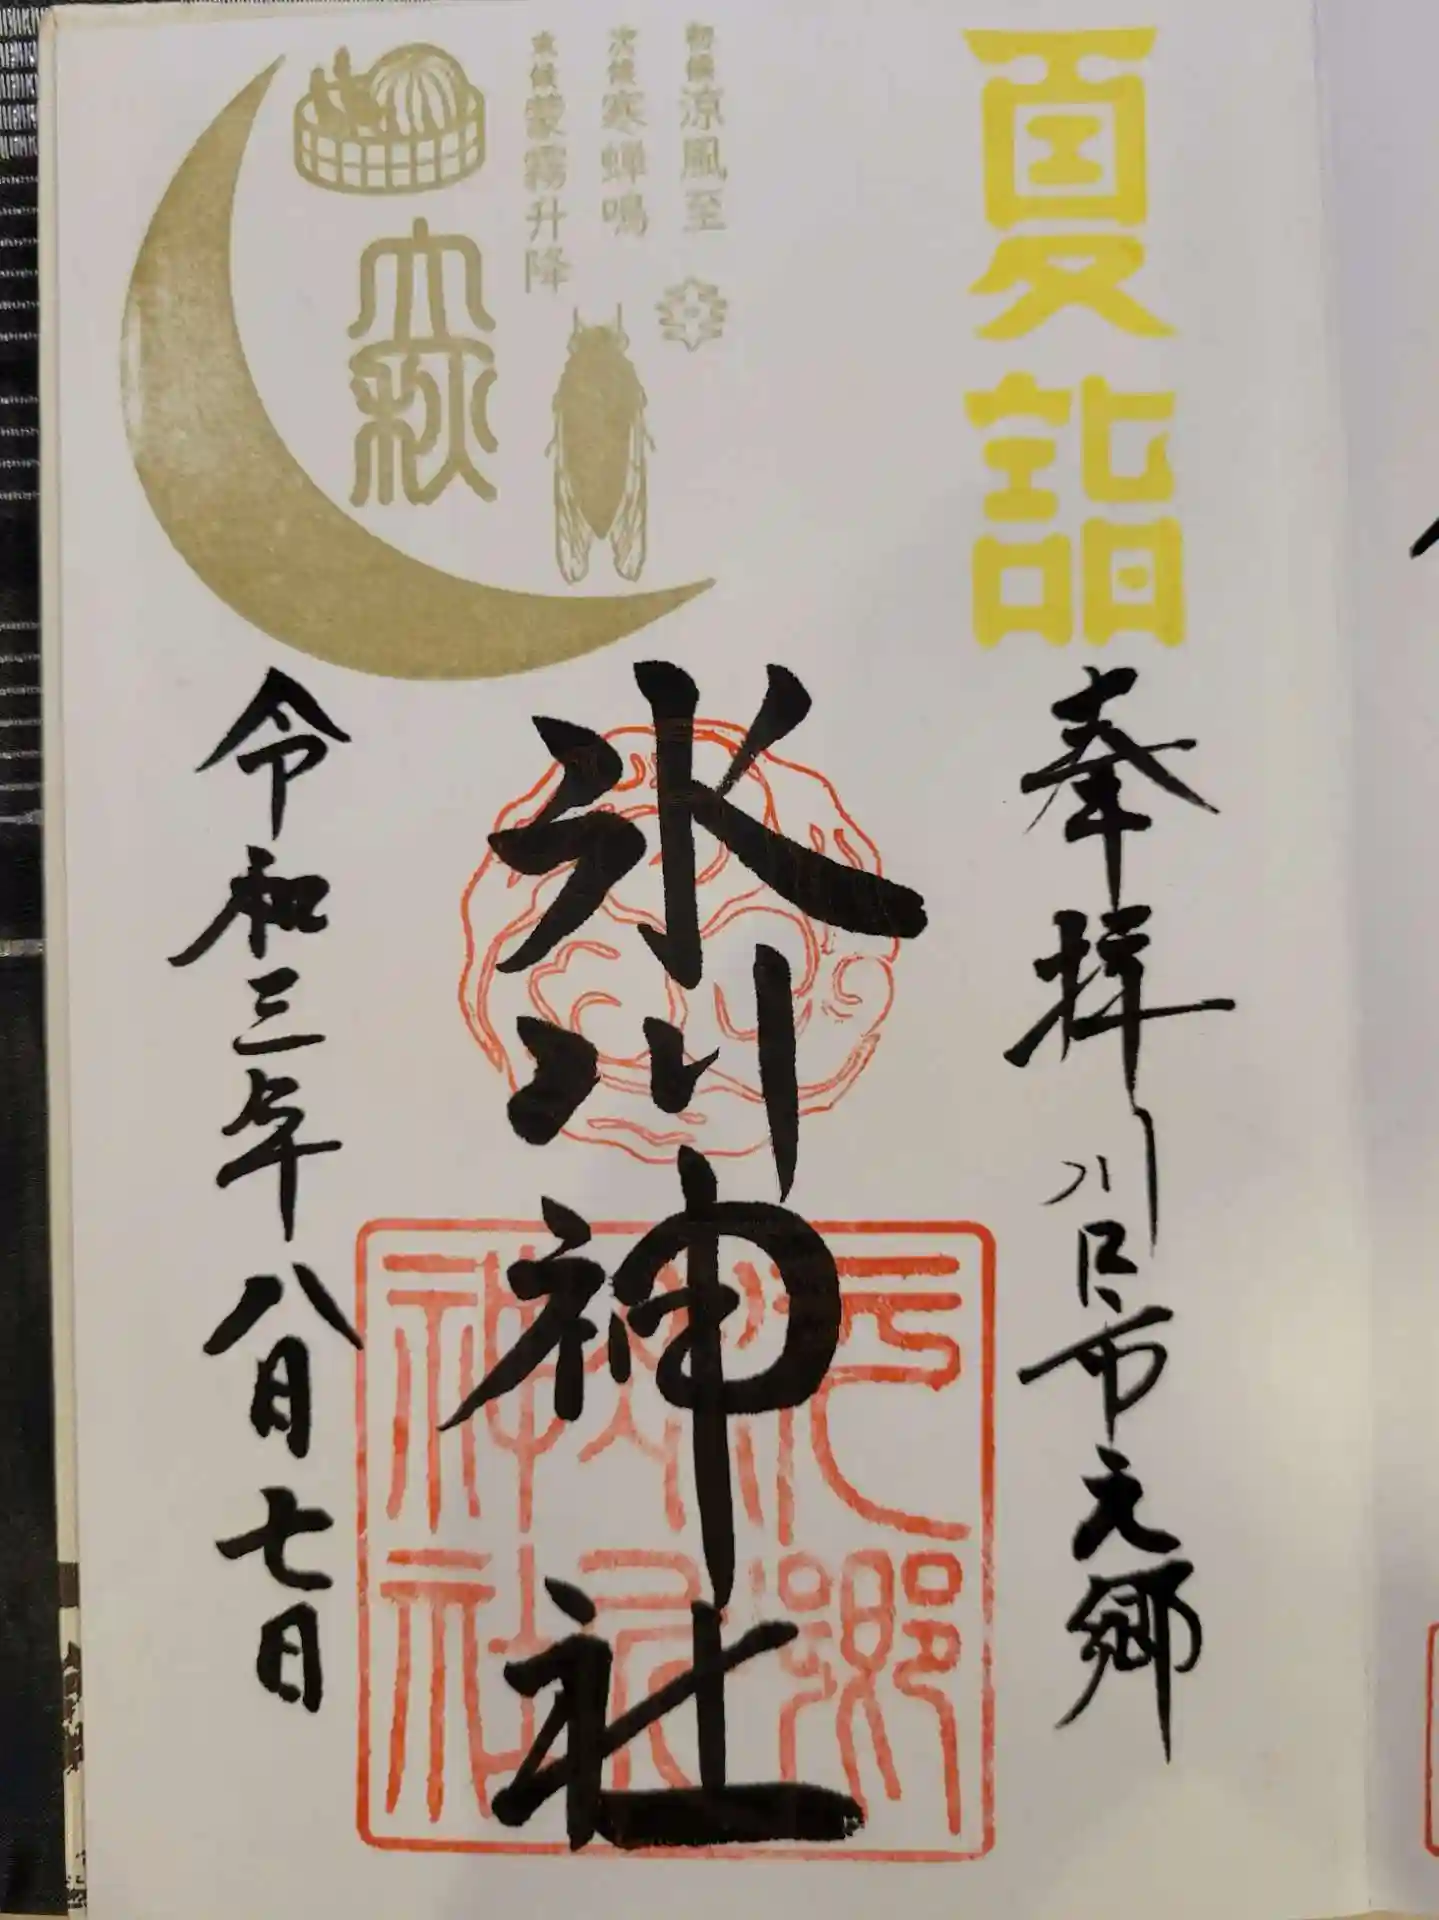 夏詣
奉拝 川口市元郷
初候涼風至
次候寒蝉鳴
末候蒙霧升降
立秋
氷川神社
元郷
氷川
神社
令和三年八月七日